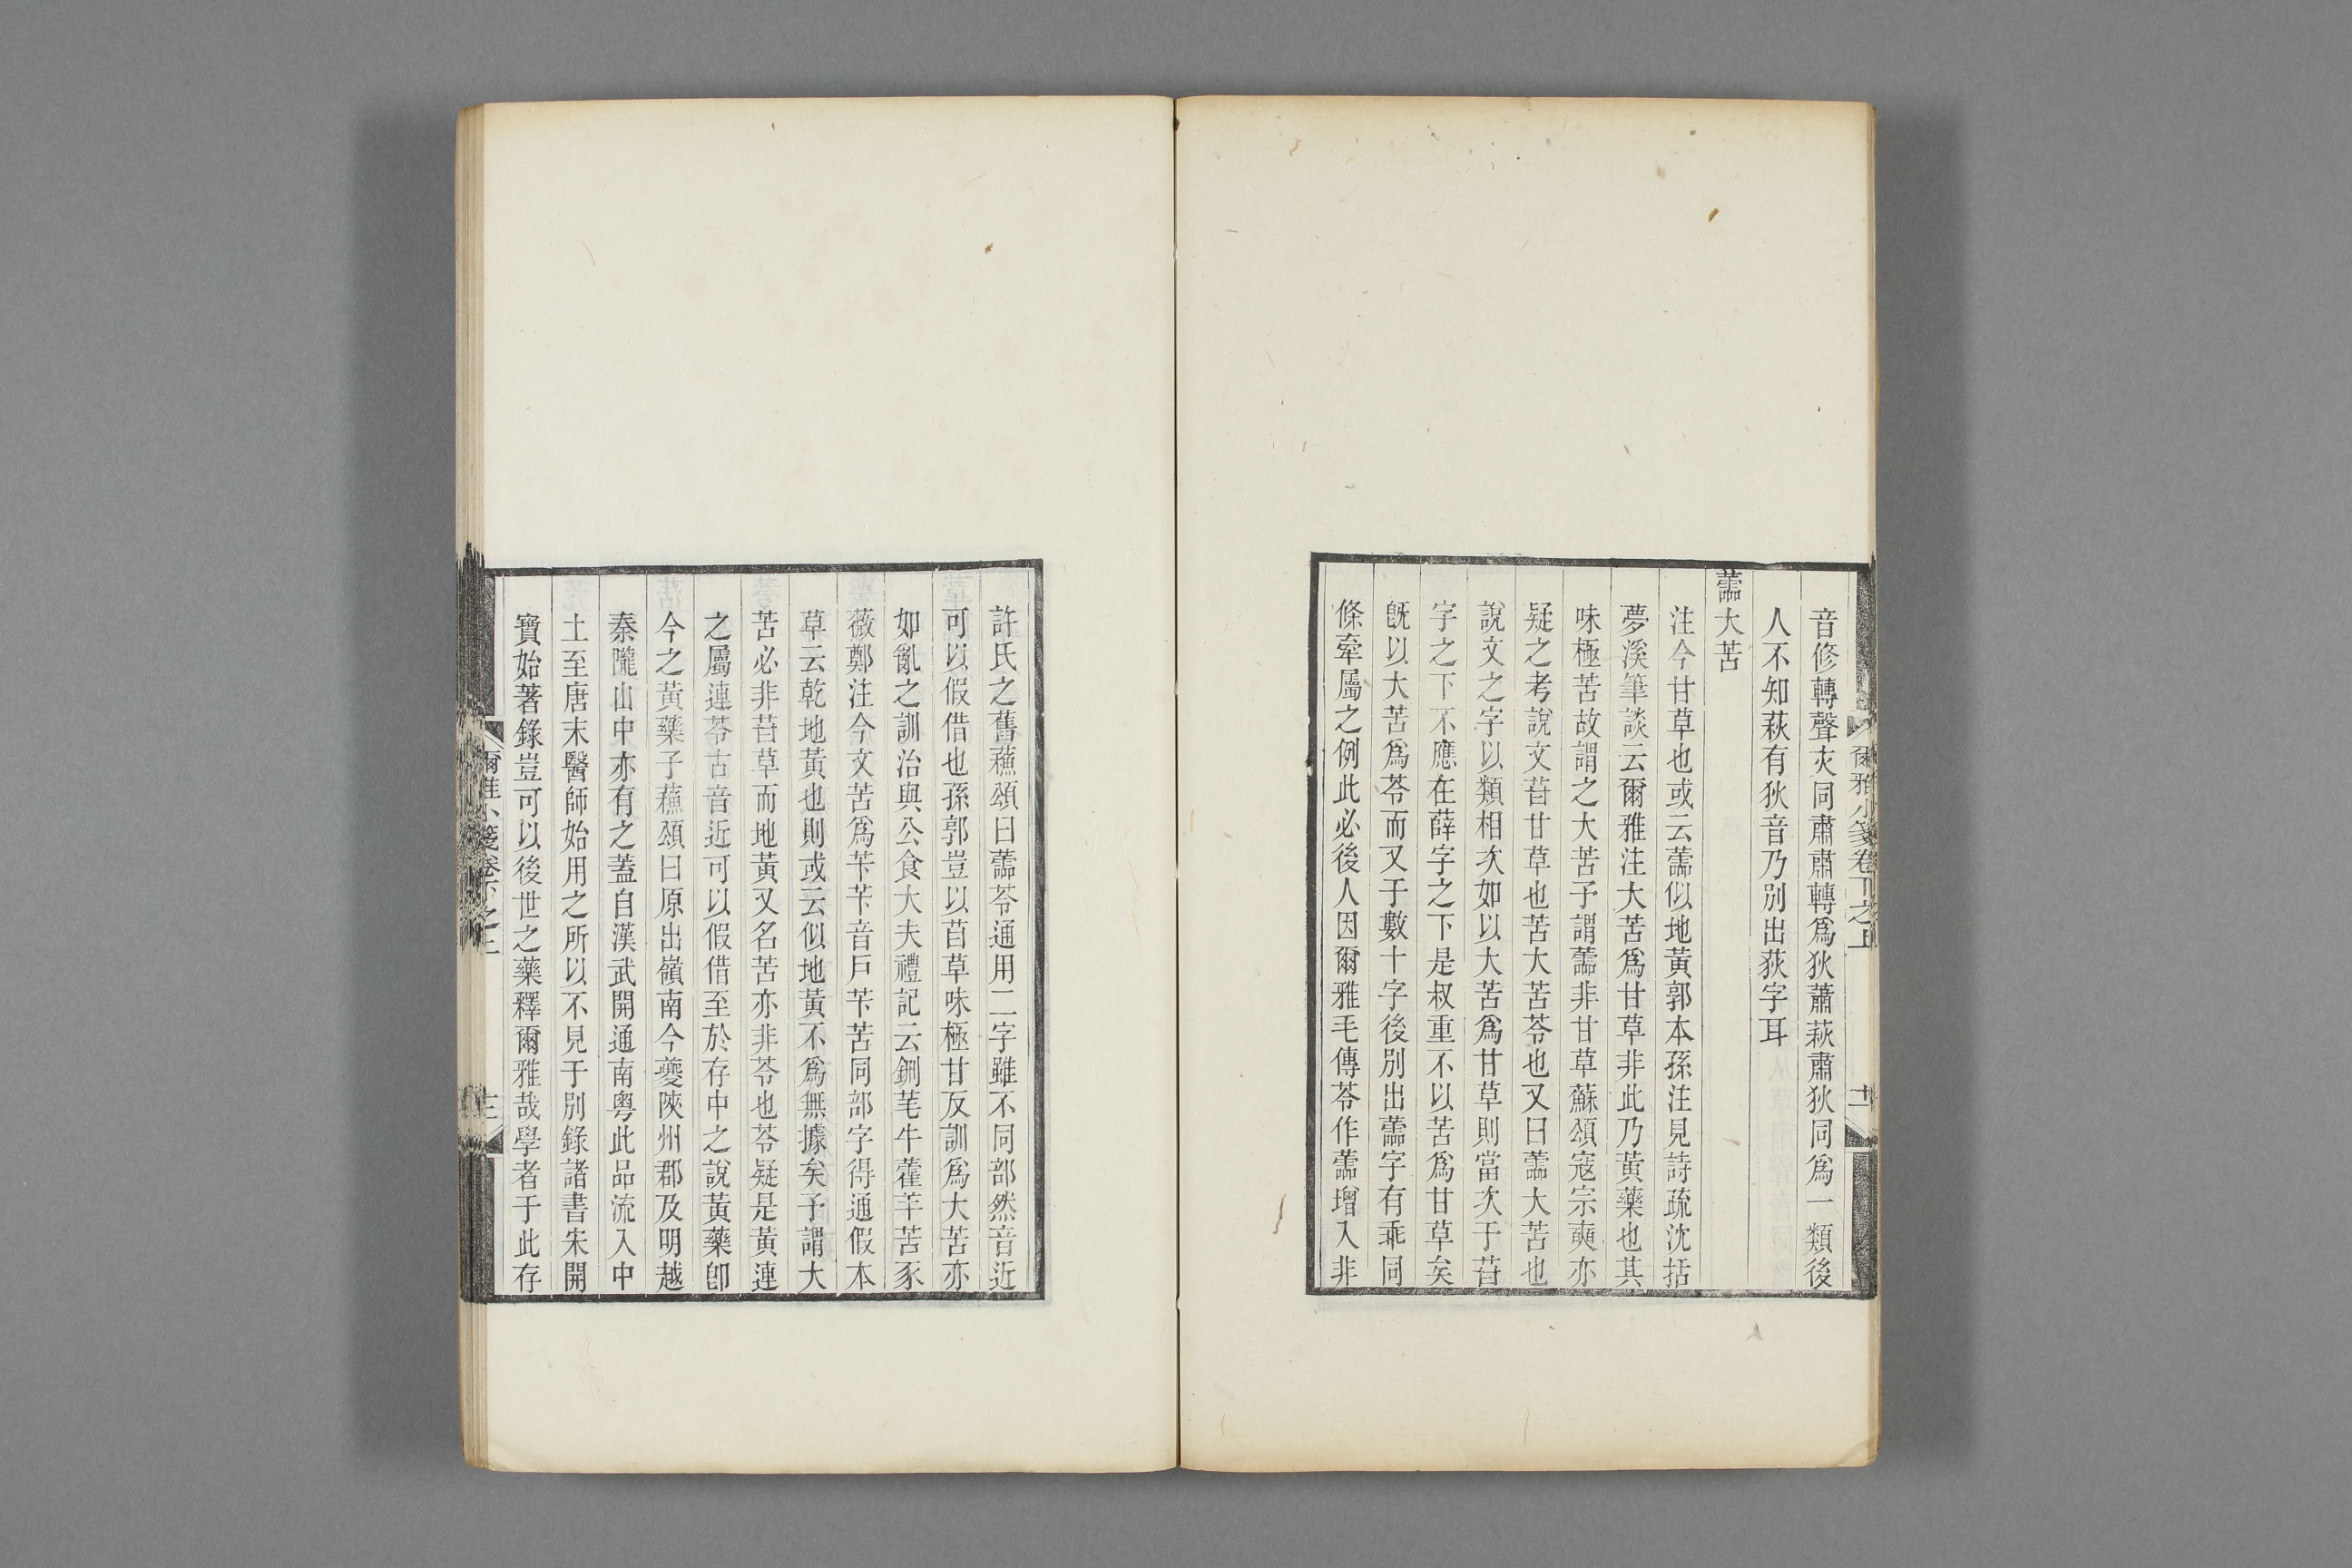 音修轉聲夾同肅肅轉爲狄蕭萩肅狄同爲一類後
人不知萩有狄音乃別出荻字耳
蘦大苦
注今甘草也或云蘦似地黃郭本孫注見詩疏沈括
夢溪筆談云爾雅注大苦爲甘草非此乃黃藥也其
味極苦故謂之大苦予謂蘦非甘草蘇頌寇宗奭亦
疑之考說文苷甘草也苦大苦苓也又曰蘦大苦也
說文之字以類相次如以大苦爲甘草則當次于苷
字之下不應在薛字之下是叔重不以苦爲甘草矣
旣以大苦爲苓而又于數十字後別出蘦字有乖同
條牽屬之例此必後人因爾雅毛傳苓作蘦增入非
爾雅小箋卷下之上
十二
許氏之舊蘓頌曰蘦苓通用二字雖不同部然音近
可以假借也孫郭豈以苢草味極甘反訓爲大苦亦
如亂之訓治與公食大夫禮記云鉶芼牛藿羊苦豕
薇鄭注今文苦爲苄苄音戶苄苦同部字得通假本
草云乾地黃也則或云似地黃不爲無據矣予謂大
苦必非苷草而地黃又名苦亦非苓也苓疑是黃連
之屬連苓古音近可以假借至於存中之說黃藥卽
今之黃藥子蘓頌曰原出嶺南今夔陝州郡及明越
秦隴山中亦有之蓋自漢武開通南粤此品流入中
土至唐末醫師始用之所以不見于別錄諸書宋開
寶始著錄豈可以後世之藥釋爾雅哉學者于此存
爾雅小箋卷下之上